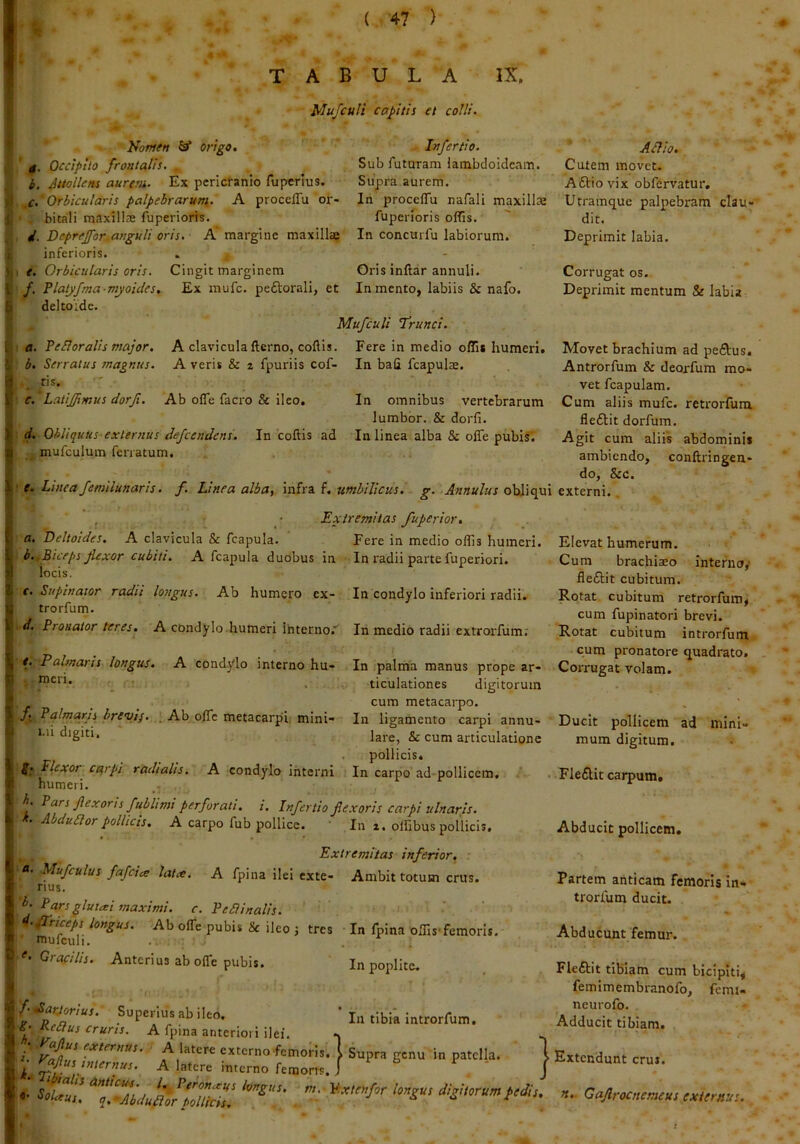 ( 47 )
TABULA IX.
Musculi capitis et colli.
Nomen & origo. Insertio. Actio.
a. Occipito frontalis. Sub suturam lambdoideam. Cutem movet.
b. Attollens aurem. Ex pericranio superius. Supra aurem. Actio vix observatur.
c. Orbicularis palpebrarum. A processu or- In processu nasali maxillæ Utramque palpebram clau-
bitali maxillæ superioris. superioris ossis. dit.
d. Depressor anguli oris. A margine maxillæ In concursu labiorum. Deprimit labia.
inferioris.
e. Orbicularis oris. Cingit marginem Oris instar annuli. Corrugat os.
f. Platysma-myoides. Ex musc. pectorali, et In mento, labiis & naso. Deprimit mentum & labia
deltoide.
Musculi Trunci.
a. Pectoralis major. A clavicula sterno, costis. Fere in medio ossis humeri. Movet brachium ad pectus.
b. Serratus magnus. A veris & 2 spuriis cos- In basi scapulæ. Antrorsum & deorsum mo-
tis. vet scapulam.
c. Latissimus dorsi. Ab osse sacro & ileo. In omnibus vertebrarum Cum aliis musc. retrorsum
lumbor. & dorsi. flectit dorsum.
d. Obliquus externus descendens. In costis ad In linea alba & osse pubis. Agit cum aliis abdominis
musculum serratum. ambiendo, constringen-
do, &c.
e. Linea semilunaris. f. Linea alba, infra f. umbilicus. g. Annulus obliqui externi.
Extremitas superior.
a. Deltoides. A clavicula & scapula. Fere in medio ossis humeri. Elevat humerum.
b. Biceps flexor cubiti. A scapula duobus in In radii parte superiori. Cum brachiæo interno,
locis. flectit cubitum.
c. Supinator radii longus. Ab humero ex- In condylo inferiori radii. Rotat cubitum retrorsum,
trorsum. cum supinatori brevi.
d. Pronator teres. A condylo humeri interno. In medio radii extrorsum. Rotat cubitum introrsum
cum pronatore quadrato.
e. Palmaris longus. A condylo interno hu- In palma manus prope ar- Corrugat volam.
meri. ticulationes digitorum
cum metacarpo.
f. Palmaris brevis. Ab osse metacarpi mini- In ligamento carpi annu- Ducit pollicem ad mini-
mi digiti. lare, & cum articulatione mum digitum.
pollicis.
g. Flexor carpi radialis. A condylo interni In carpo ad pollicem. Flectit carpum.
humeri.
h. Pars flexoris sublimi perforati. i. Insertio flexoris carpi ulnaris.
k. Abductor pollicis. A carpo sub pollice. In 2. ossibus pollicis. Abducit pollicem.
Extremitas inferior.
a. Musculus fasciæ latæ. A spina ilei exte- Ambit totum crus. Partem anticam femoris in-
rius. trorsum ducit.
b. Pars glutæi maximi. c. Pectinalis.
d. Triceps longus. Ab osse pubis & ileo; tres In spina ossis femoris. Abducunt femur.
musculi.
e. Gracilis. Anterius ab osse pubis. In poplite. Flectit tibiam cum bicipiti,
femimembranoso, femi-
neuroso.
f. Sartorius. Superius ab ileo. In tibia introrsum. Adducit tibiam.
g. Rectus cruris. A spina anteriori ilei.
h. Vastus externus. A latere externo femoris. } Supra genu in patella. } Extendunt crus.
i. Vastus internus. A latere interno femoris.
k. Tibialis anticus. l. Peronæus longus. m. Extensor longus digitorum pedis. n. Gastrocnemeus externus.
o. Solæus. q. Abductor pollicis.